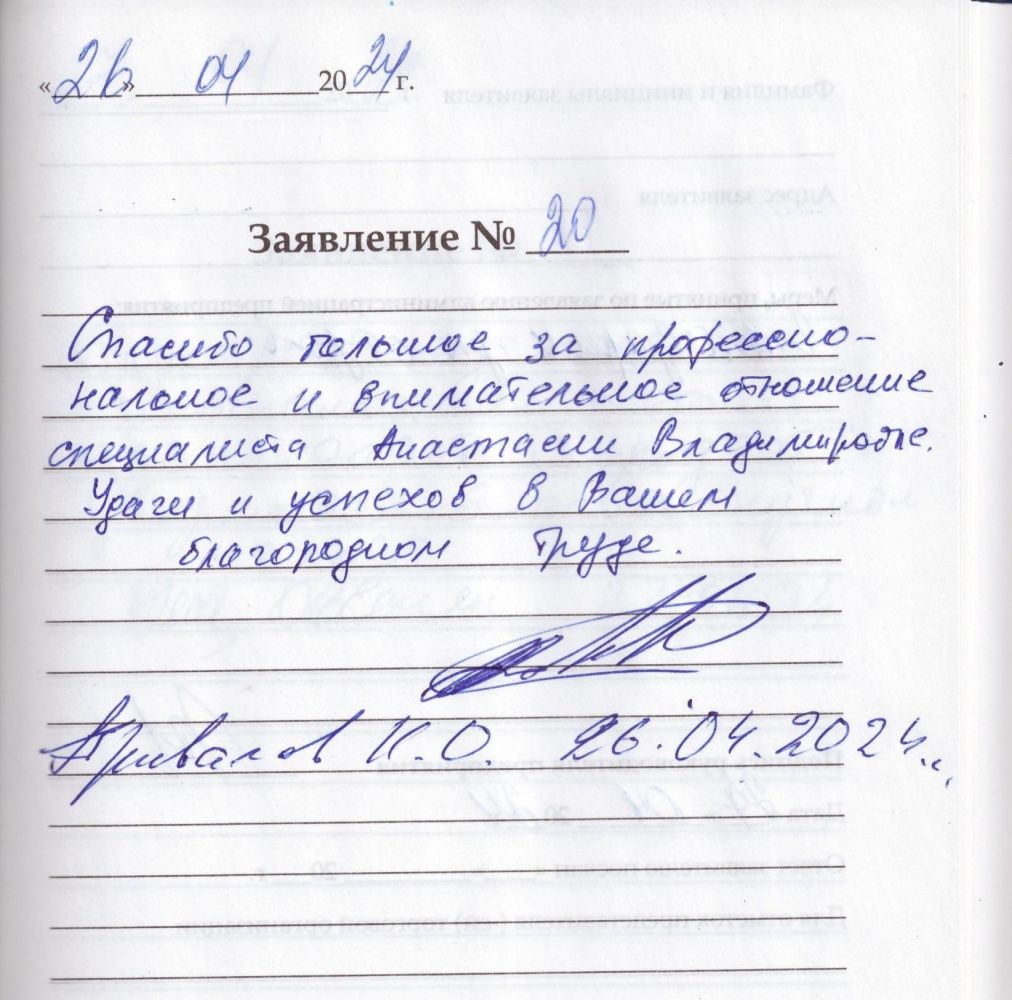 «26» 04 2024 г.
Заявление № 20
Спасибо большое за профессио-
нальное и внимательное отношение
специалиста Анастасии Владимировне.
Удачи и успехов в Вашем
благородном труде.
Привалов К.О. 26.04.2024г.